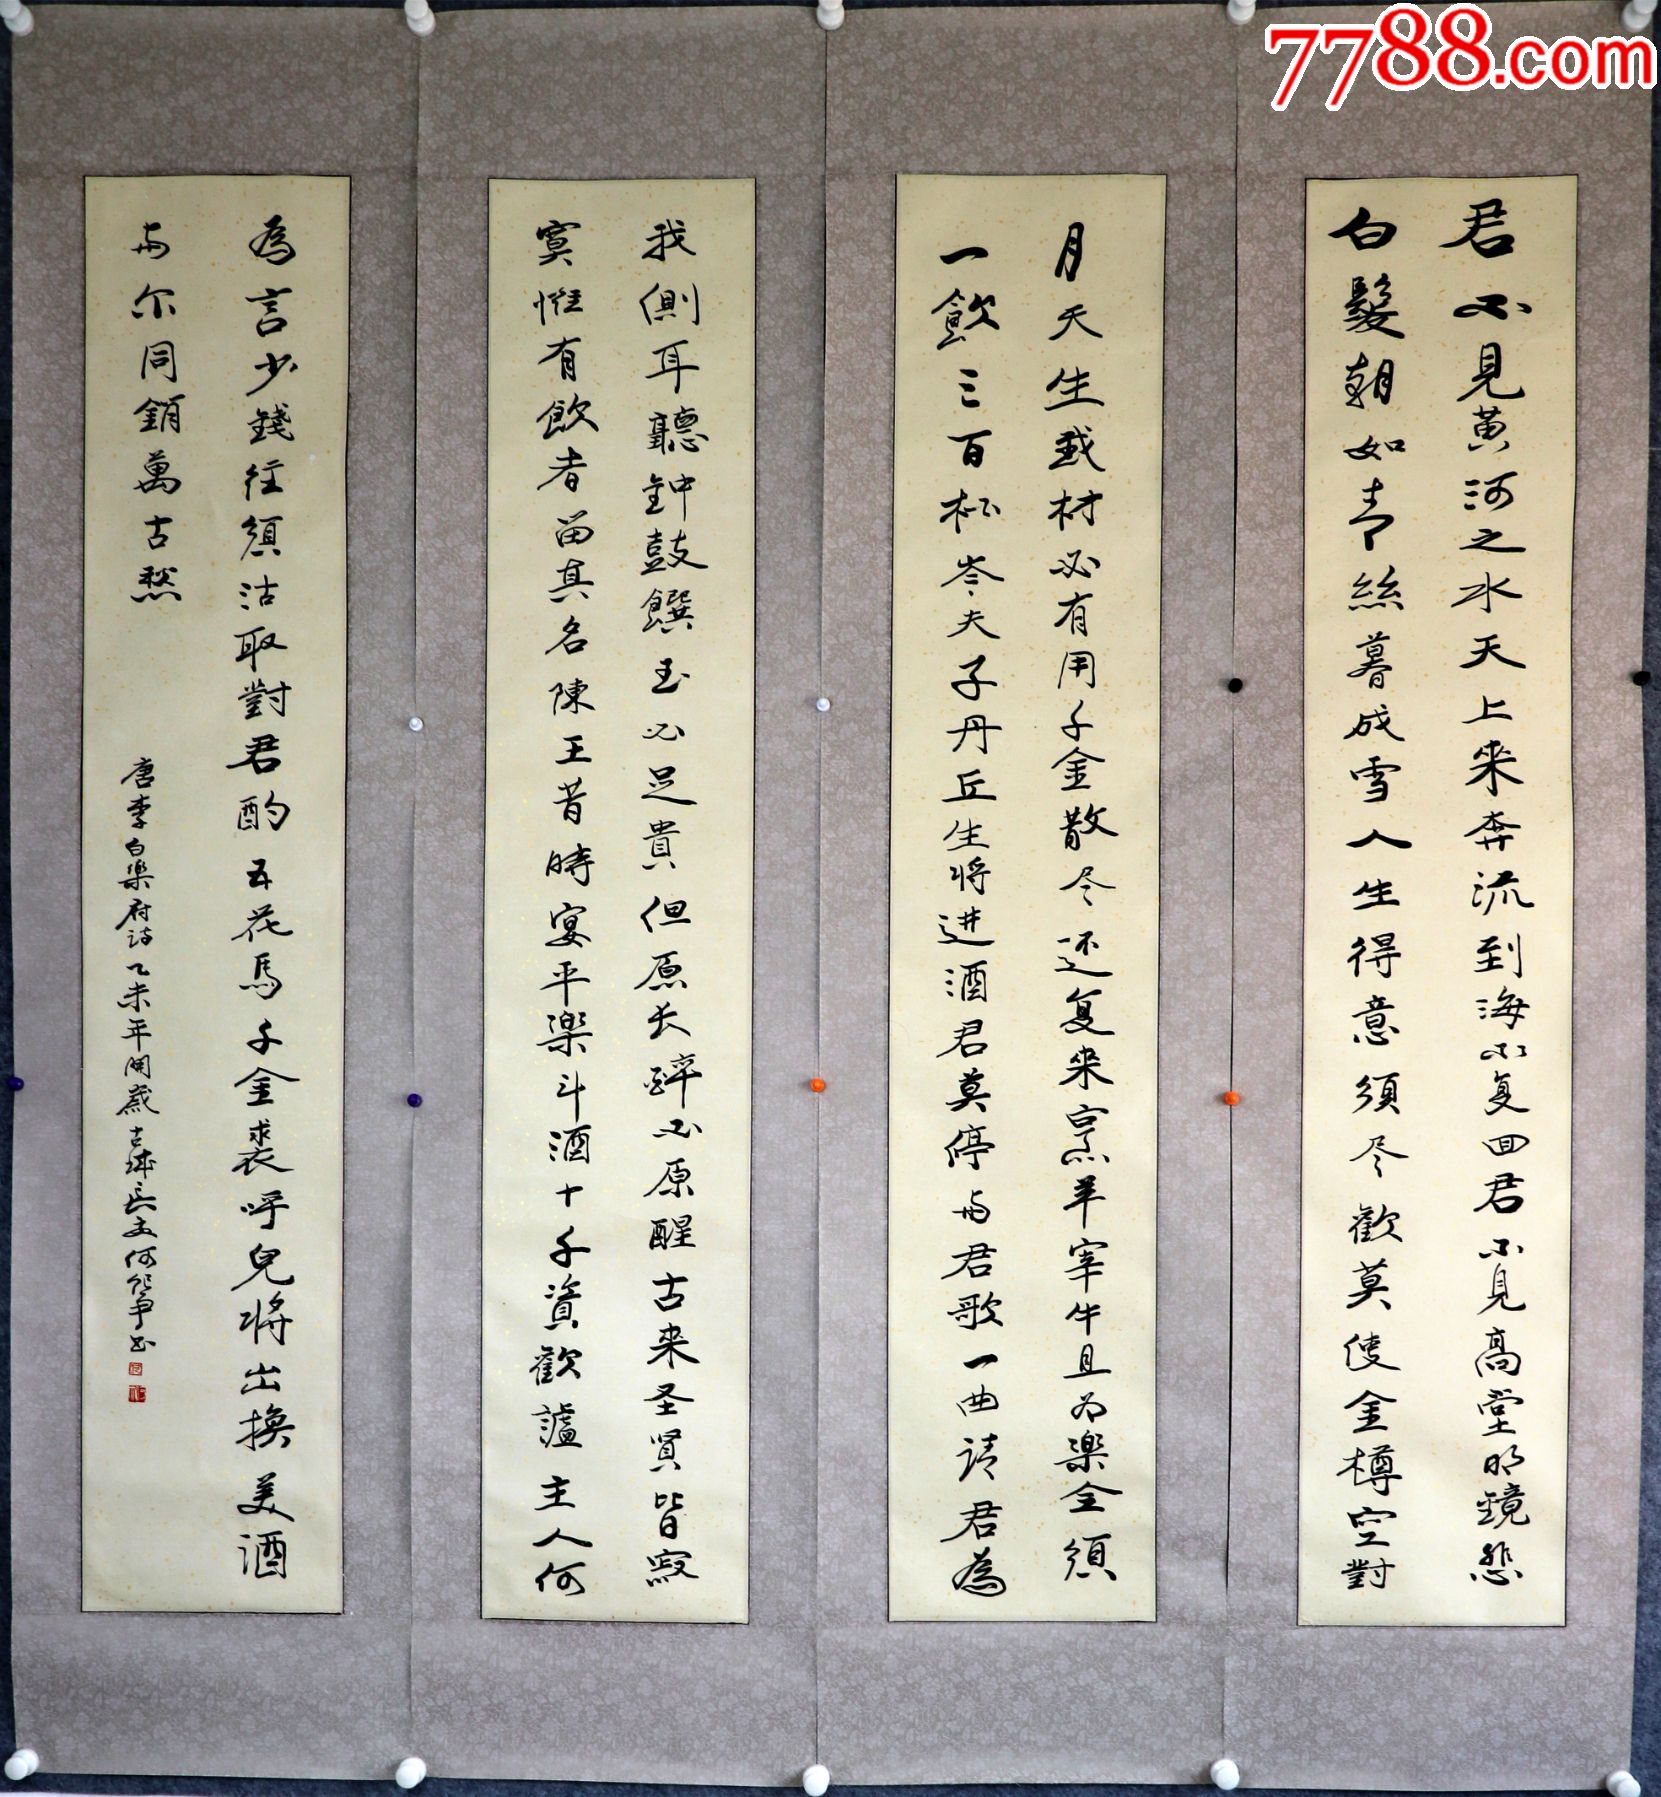 7788.com
君不見黄河之水天上来奔流到海不复回君不見高堂明鏡悲
白髮朝如青絲暮成雪人生得意須尽歡莫使金樽空對
月天生我材必有用千金散尽还复来烹羊宰牛且为樂全須
一飲三百杯岑夫子丹丘生将进酒君莫停与君歌一曲請君為
我側耳聽鈡鼓饌玉不足貴但原长醉不原醒古来圣賢皆寂
寞惟有飲者留其名陳王昔時宴平樂斗酒十千資歡謔主人何
為言少錢径須沽取對君酌五花馬千金裘呼兒将出換美酒
与尔同銷萬古愁
唐李白樂府诗乙未年開歲古城長安何作争书